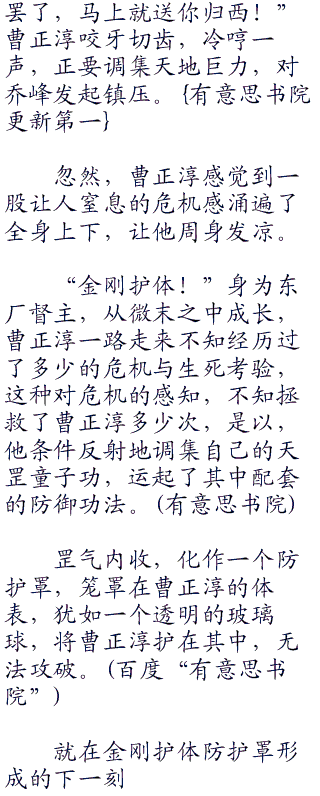 罢了，马上就送你归西！”
曹正淳咬牙切齿，冷哼一
声，正要调集天地巨力，对
乔峰发起镇压。{有意思书院
更新第一}
忽然，曹正淳感觉到一
股让人窒息的危机感涌遍了
全身上下，让他周身发凉。
“金刚护体！”身为东
厂督主，从微末之中成长，
曹正淳一路走来不知经历过
了多少的危机与生死考验，
这种对危机的感知，不知拯
救了曹正淳多少次，是以，
他条件反射地调集自己的天
罡童子功，运起了其中配套
的防御功法。(有意思书院)
罡气内收，化作一个防
护罩，笼罩在曹正淳的体
表，犹如一个透明的玻璃
球，将曹正淳护在其中，无
法攻破。(百度“有意思书
院”)
就在金刚护体防护罩形
成的下一刻